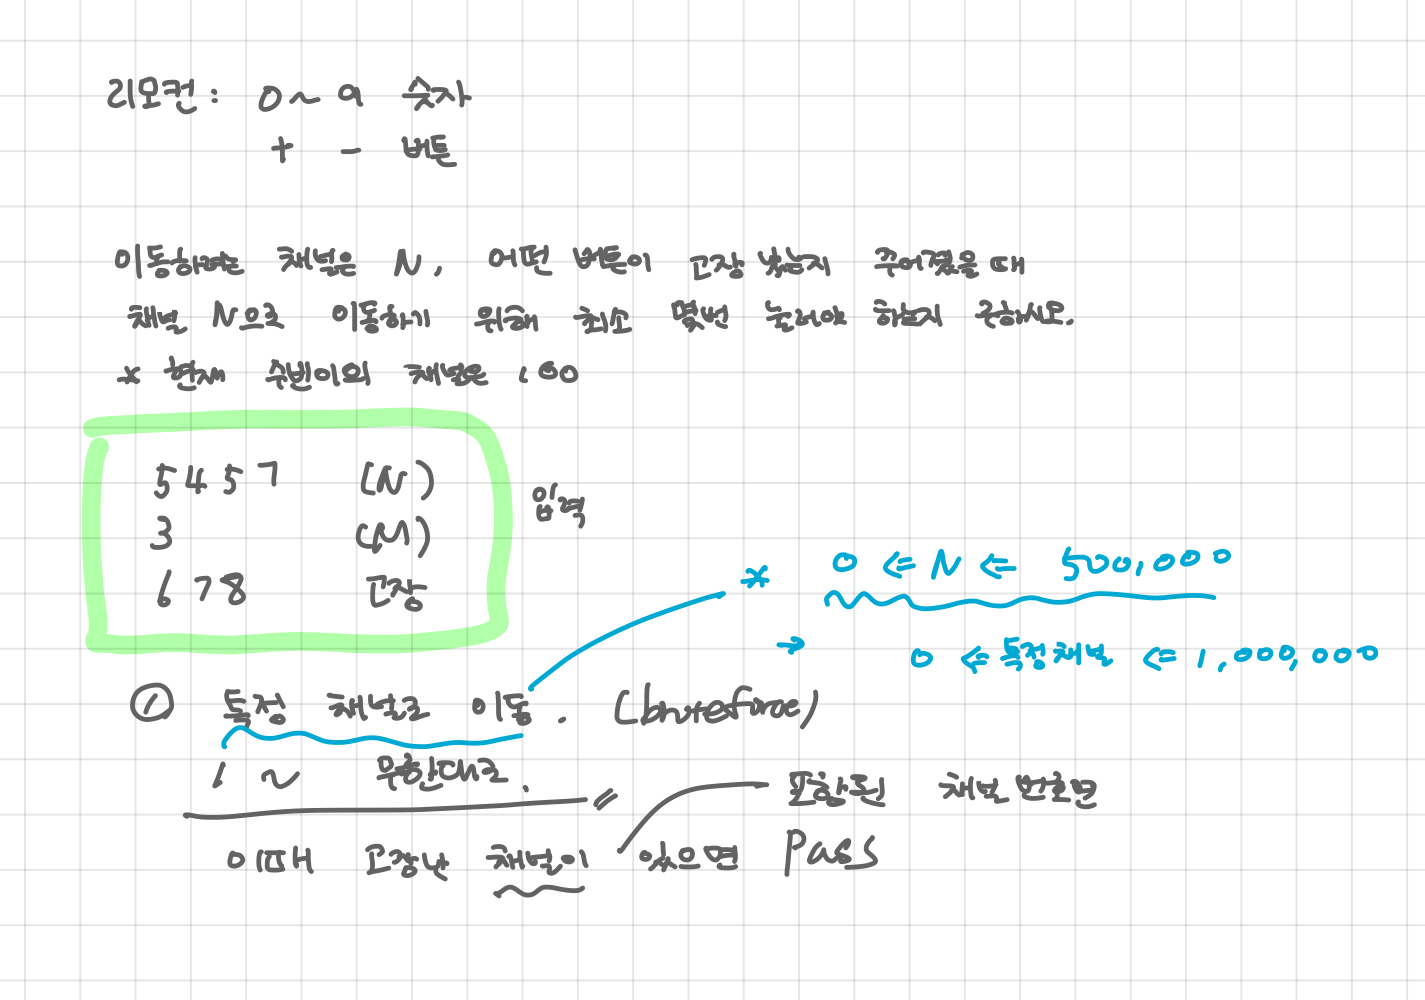 리모컨 : 0 ~ 9 숫자
+ - 버튼
이동하려는 채널은 N, 어떤 버튼이 고장 났는지 주어졌을 때
채널 N으로 이동하기 위해 최소 몇번 눌러야 하는지 구하시오.
* 현재 수빈이의 채널은 100
5457 (N)
3 (M)
6 7 8 고장
입력
* 0 <= N <= 500,000
→ 0 <= 특정채널 <= 1,000,000
① 특정 채널로 이동. (bruteforce)
1 ~ 무한대로.
포함된 채널 번호면
이때 고장난 채널이 있으면 Pass